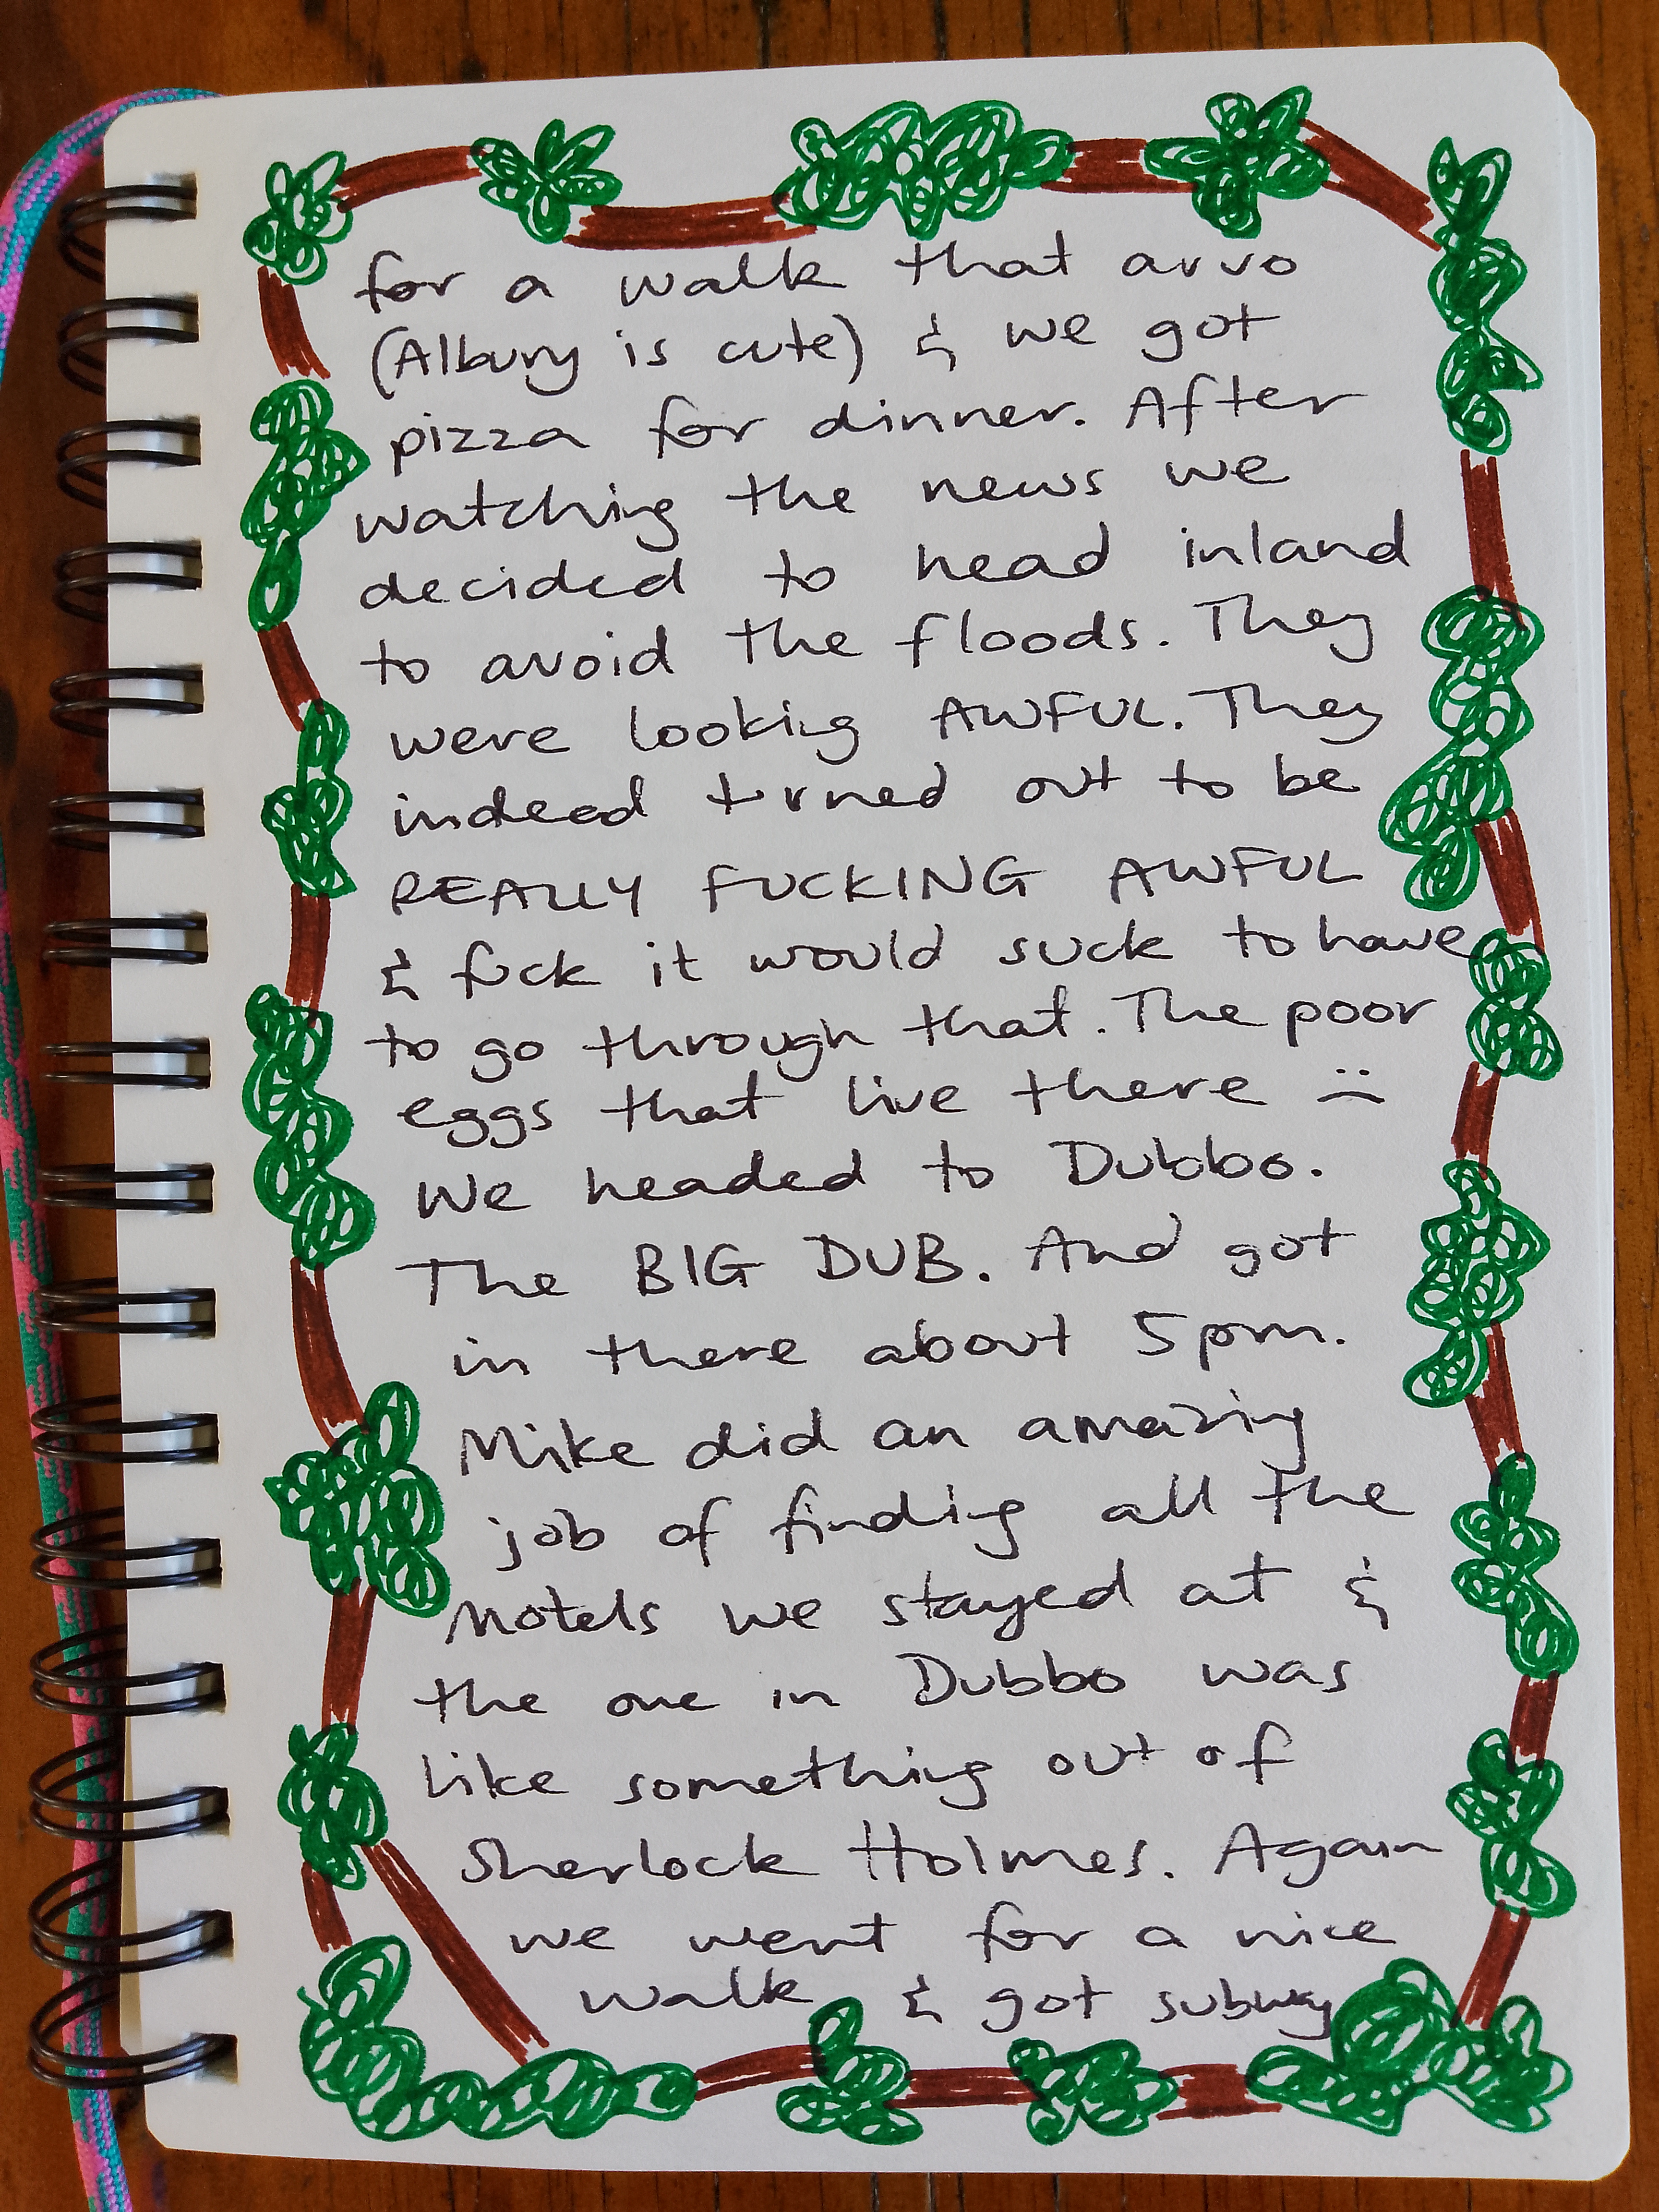 for a walk that arvo
(Albury is cute) & we got
pizza for dinner. After
watching the news we
decided to head inland
to avoid the floods. They
were looking AWFUL. They
indeed turned out to be
REALLY FUCKING AWFUL
& fuck it would suck to have
to go through that. The poor
eggs that live there :(
We headed to Dubbo.
The BIG DUB. And got
in there about 5pm.
Mike did an amazing
job of finding all the
Motels we stayed at &
the one in Dubbo was
like something out of
Sherlock Holmes. Again
we went for a nice
walk & got subway